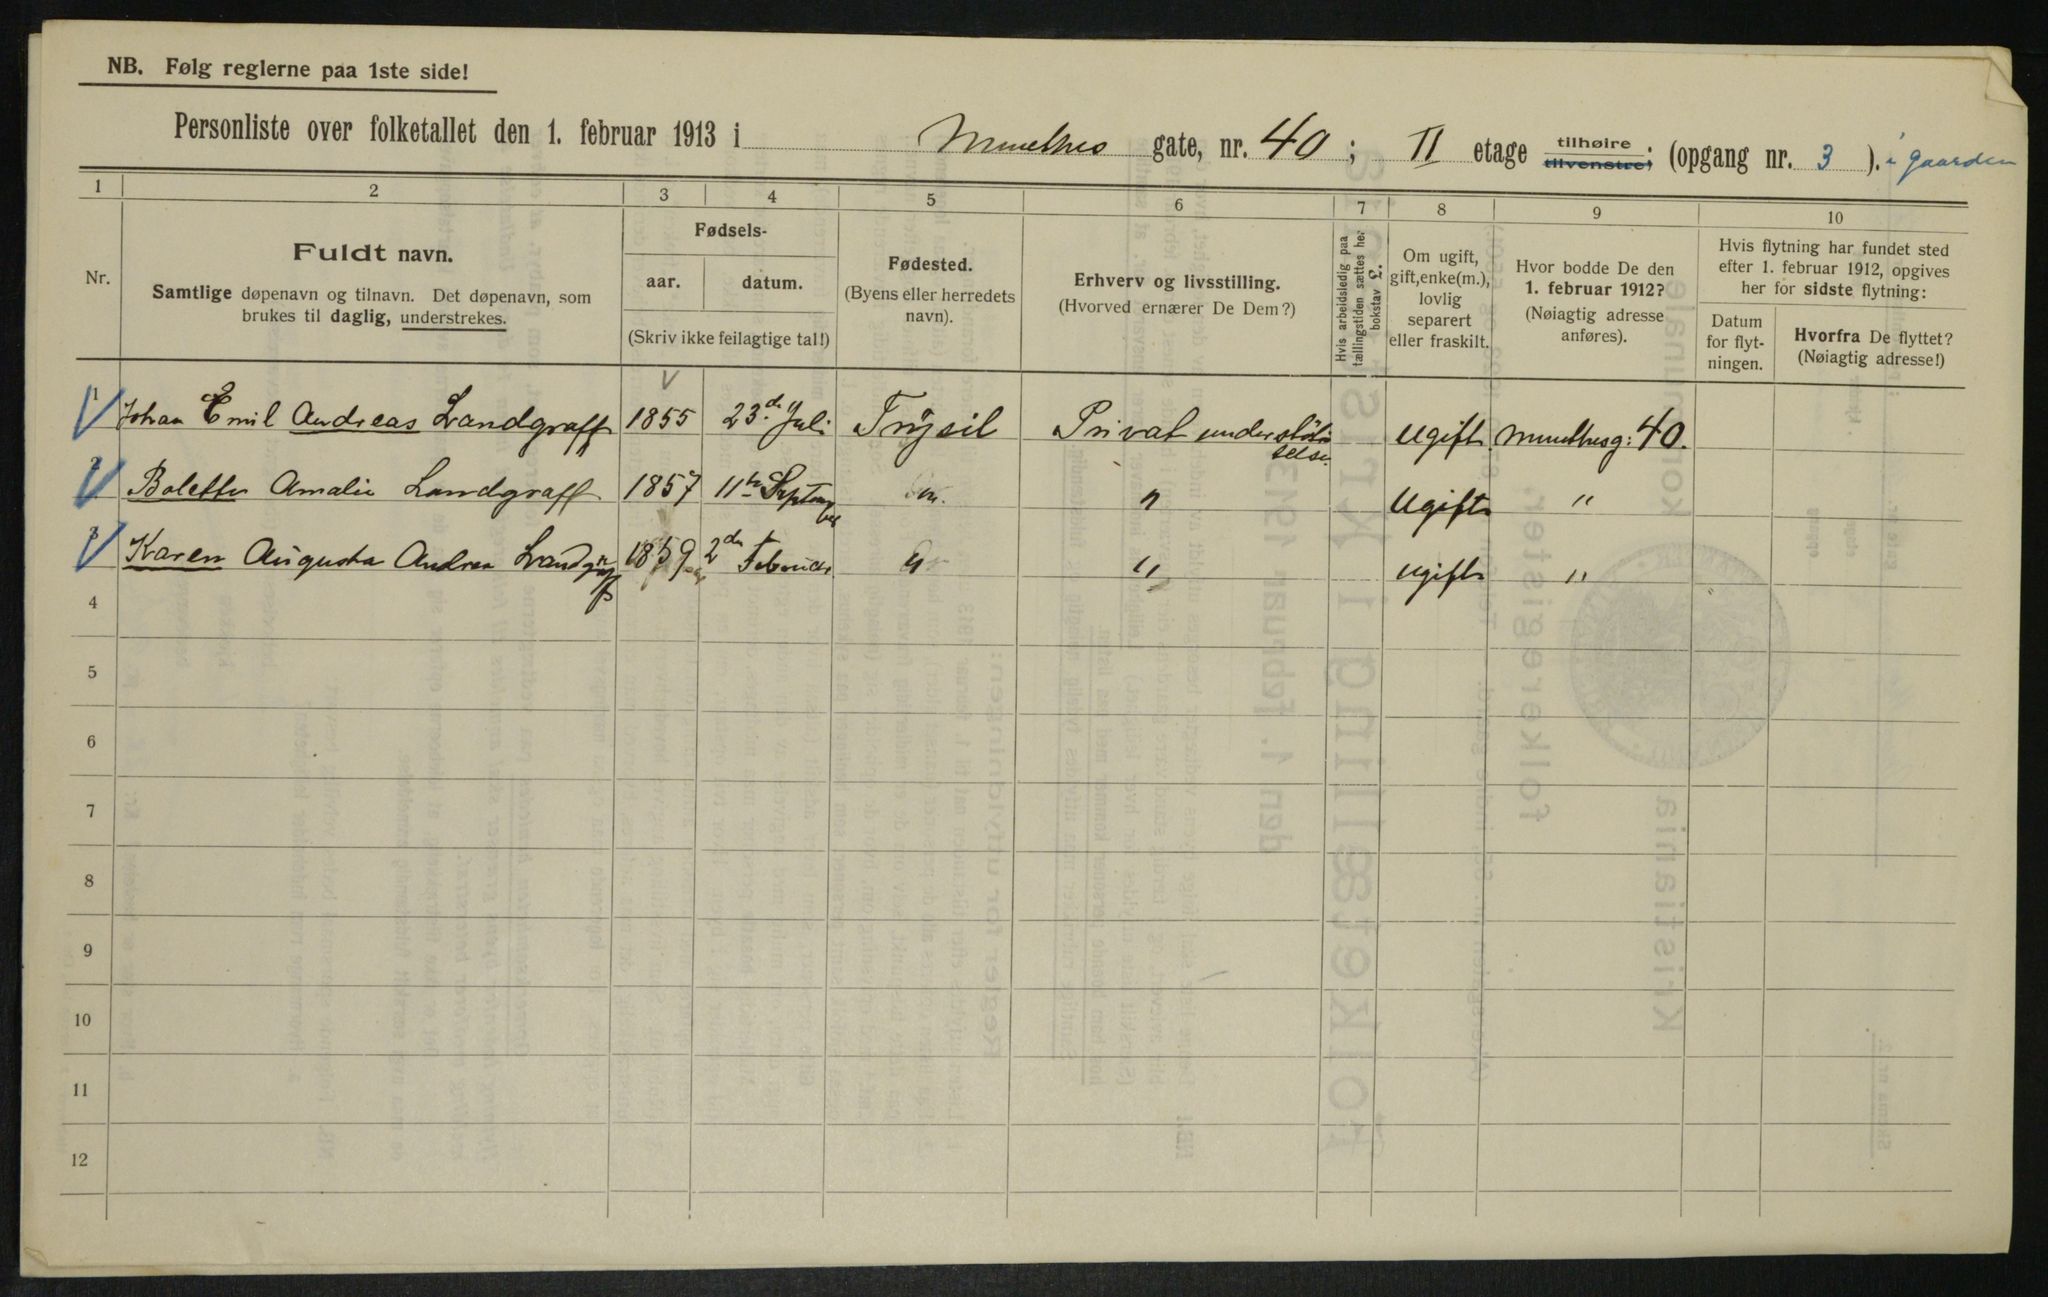 NB. Følg reglerne paa 1ste side!
Personliste over folketallet den 1. februar 1913 i Munthes gate, nr. 40; II etage tilhøire tilvenstre; (opgang nr. 3 ). i gaarden
1 2 3 4 5 6 7 8 9 10
Nr.
Fuldt navn.
Samtlige døpenavn og tilnavn. Det døpenavn, som
brukes til daglig, understrekes.
Fødsels-
aar. datum.
(Skriv ikke feilagtige tal!)
Fødested.
(Byens eller herredets
navn).
Erhverv og livsstilling.
(Hvorved ernærer De Dem?)
Hvis arbeidsledig paa
tællingstiden sættes her
bokstav l.
Om ugift,
gift, enke(m.),
lovlig
separert
eller fraskilt.
Hvor bodde De den
1. februar 1912?
(Nøiagtig adresse
anføres).
Hvis flytning har fundet sted
efter 1. februar 1912, opgives
her for sidste flytning:
Datum
for flyt-
ningen.
Hvorfra De flyttet?
(Nøiagtig adresse!)
1 Johan Emil Andreas Landgraff 1855 23de Juli Trysil Privat understøttelse Ugift Munthesg: 40.
2 Bolette Amalie Landgraff 1857 11te September " Ugift "
3 Karen Augusta Andrea Landgraff 1859 2den Februar " " ugift "
4
5
6
7
8
9
10
11
12